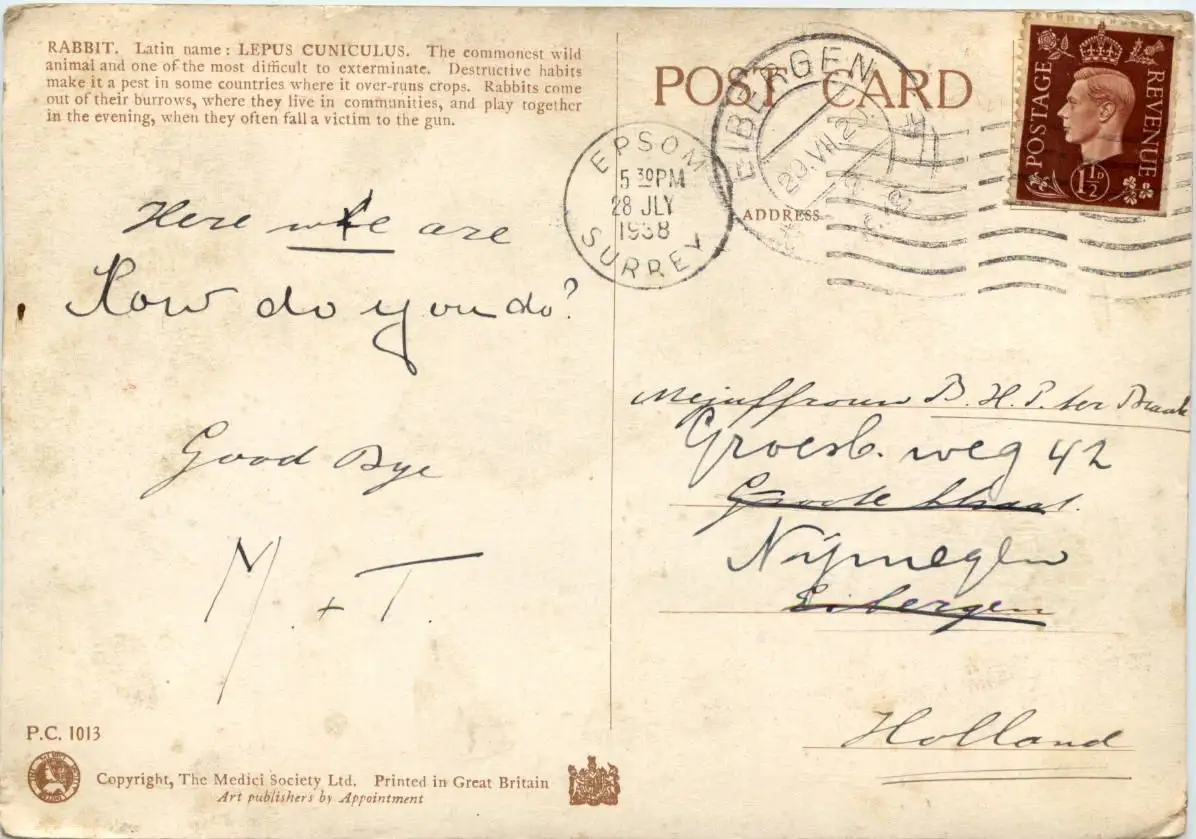 RABBIT. Latin name: LEPUS CUNICULUS. The commonest wild
animal and one of the most difficult to exterminate. Destructive habits
make it a pest in some countries where it over-runs crops. Rabbits come
out of their burrows, where they live in communities, and play together
in the evening, when they often fall a victim to the gun.
Here we are
How do you do?
Good Bye
M. + T.
P.C. 1013
Copyright, The Medici Society Ltd. Printed in Great Britain
Art publishers by Appointment
POST CARD
ADDRESS
EPSOM
5 30 PM
28 JLY
1938
SURREY
EIBERGEN
29.VII.
POSTAGE
REVENUE
1½D
Mejuffrouw B. H. P. ter Braak
Groesb. weg 42
Groote straat.
Nijmegen
Eibergen
Holland